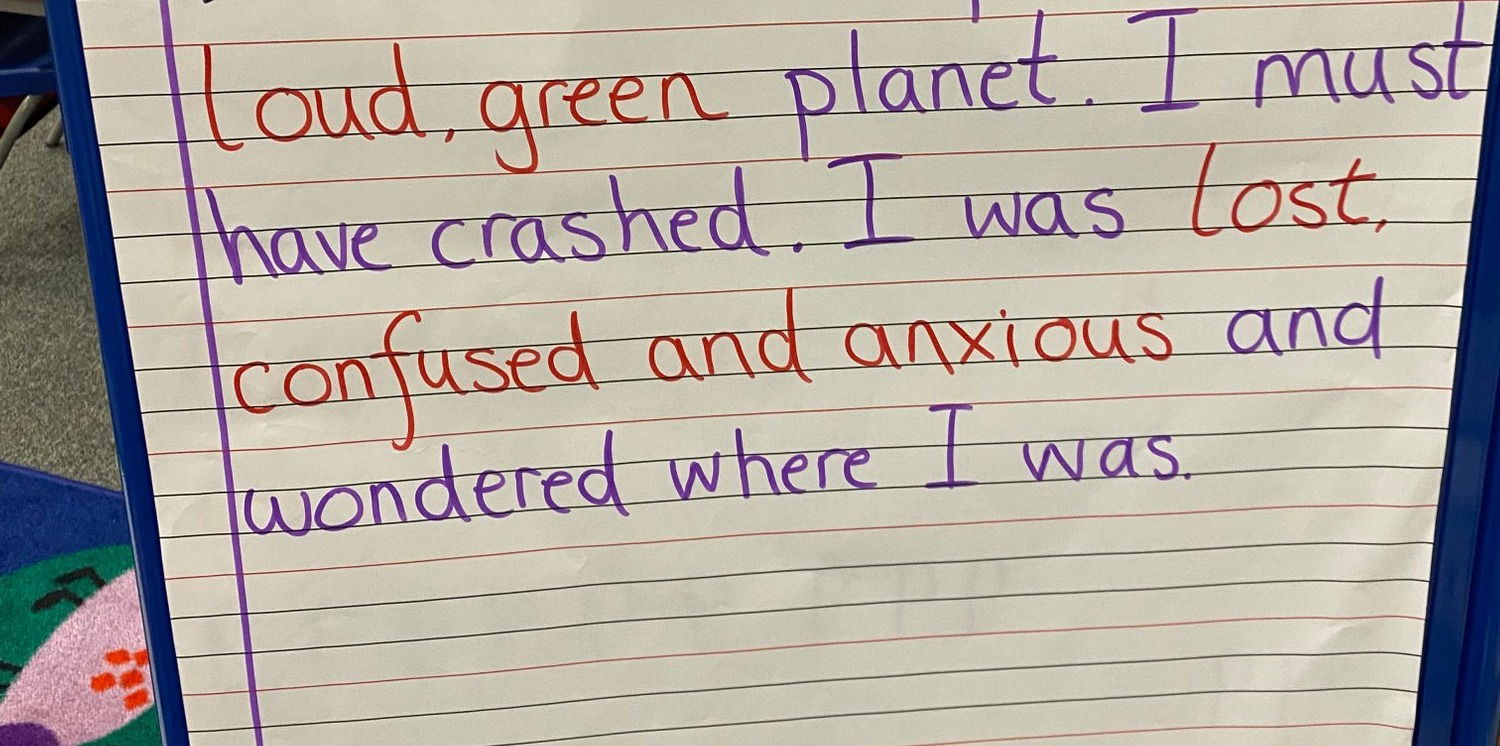 loud, green planet. I must
have crashed. I was lost,
confused and anxious and
wondered where I was.